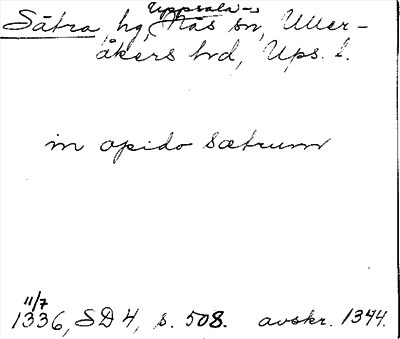 Uppsala-
Sätra, hg, Näs sn, Uller-
åkers hd, Ups. l.
in opido sætrum
11/7
1336, SD 4, s. 508. avskr. 1344.